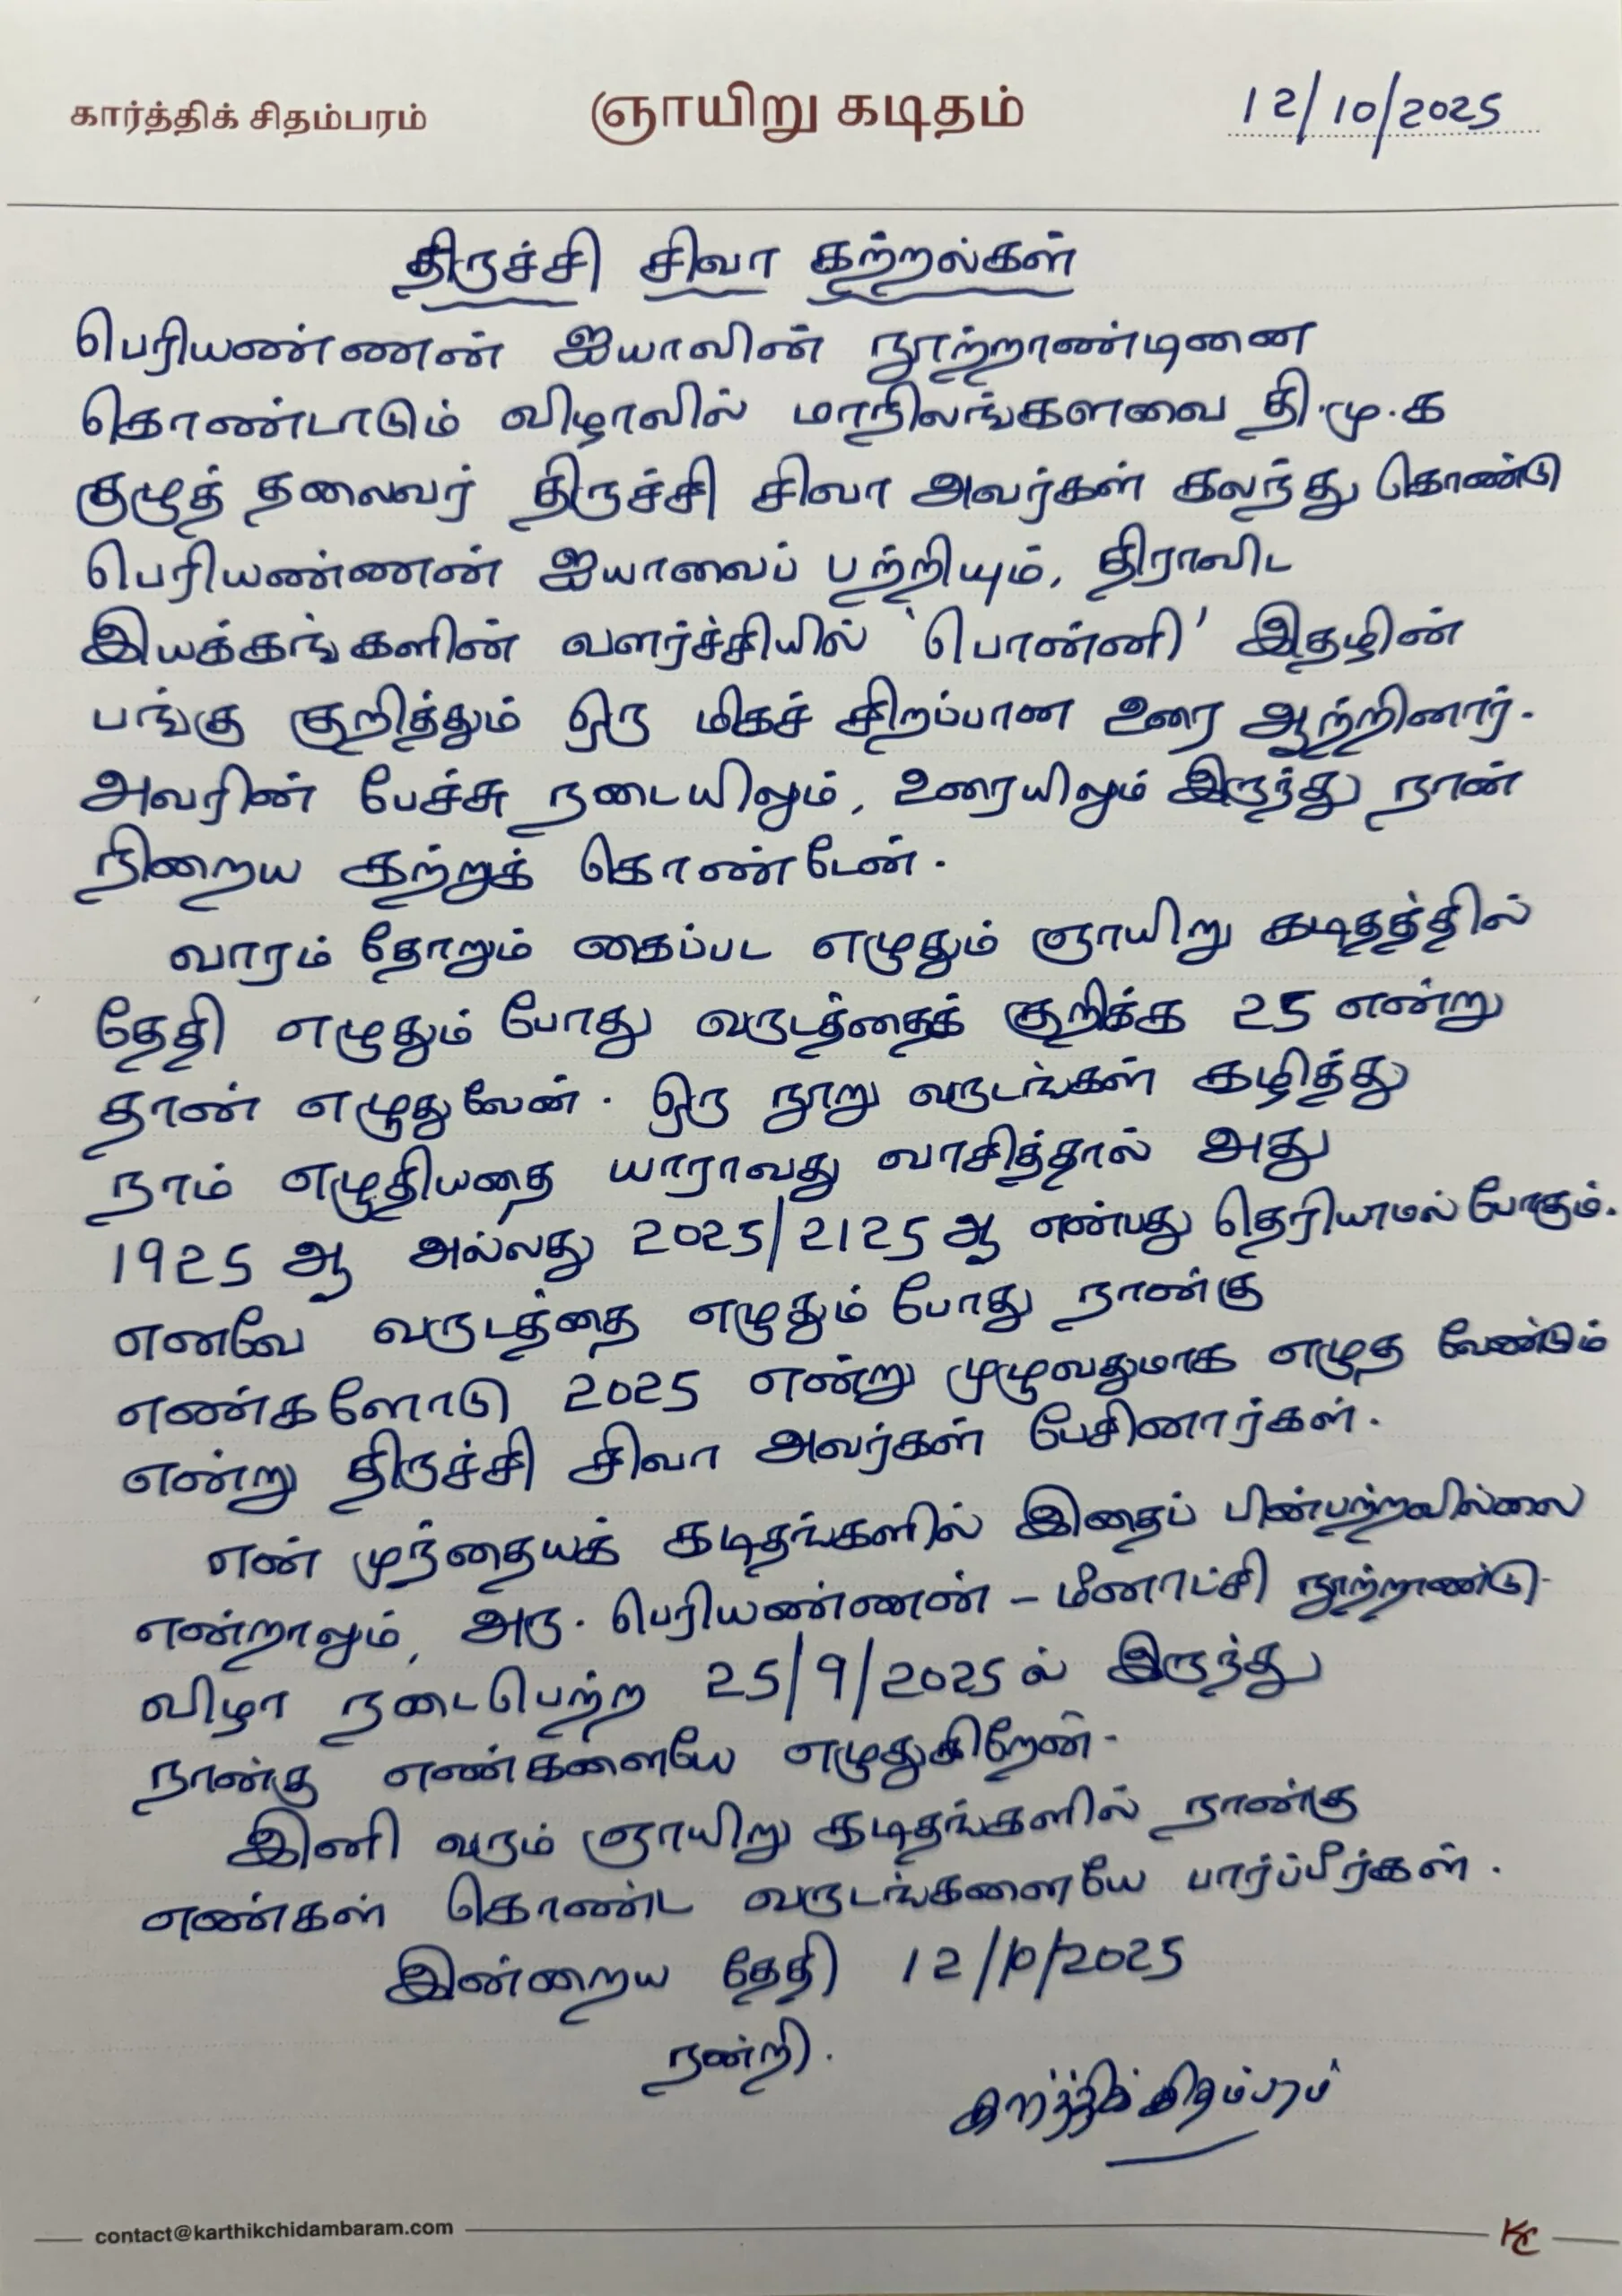 கார்த்திக் சிதம்பரம் ஞாயிறு கடிதம் 12/10/2025
திருச்சி சிவா கற்றல்கள்
பெரியண்ணன் ஐயாவின் நூற்றாண்டினை
கொண்டாடும் விழாவில் மாநிலங்களவை தி.மு.க
குழுத் தலைவர் திருச்சி சிவா அவர்கள் கலந்து கொண்டு
பெரியண்ணன் ஐயாவைப் பற்றியும், திராவிட
இயக்கங்களின் வளர்ச்சியில் 'பொன்னி' இதழின்
பங்கு குறித்தும் ஒரு மிகச் சிறப்பான உரை ஆற்றினார்.
அவரின் பேச்சு நடையிலும், உரையிலும் இருந்து நான்
நிறைய கற்றுக் கொண்டேன்.
வாரம் தோறும் கைப்பட எழுதும் ஞாயிறு கடிதத்தில்
தேதி எழுதும் போது வருடத்தைக் குறிக்க 25 என்று
தான் எழுதுவேன். ஒரு நூறு வருடங்கள் கழித்து
நாம் எழுதியதை யாராவது வாசித்தால் அது
1925 ஆ அல்லது 2025/2125 ஆ என்பது தெரியாமல் போகும்.
எனவே வருடத்தை எழுதும் போது நான்கு
எண்களோடு 2025 என்று முழுவதுமாக எழுத வேண்டும்
என்று திருச்சி சிவா அவர்கள் பேசினார்கள்.
என் முந்தையக் கடிதங்களில் இதைப் பின்பற்றவில்லை
என்றாலும், அரு. பெரியண்ணன் – மீனாட்சி நூற்றாண்டு
விழா நடைபெற்ற 25/9/2025 ல் இருந்து
நான்கு எண்களையே எழுதுகிறேன்.
இனி வரும் ஞாயிறு கடிதங்களில் நான்கு
எண்கள் கொண்ட வருடங்களையே பார்ப்பீர்கள்.
இன்றைய தேதி 12/10/2025
நன்றி.
கார்த்திக் சிதம்பரம்
contact@karthikchidambaram.com KC